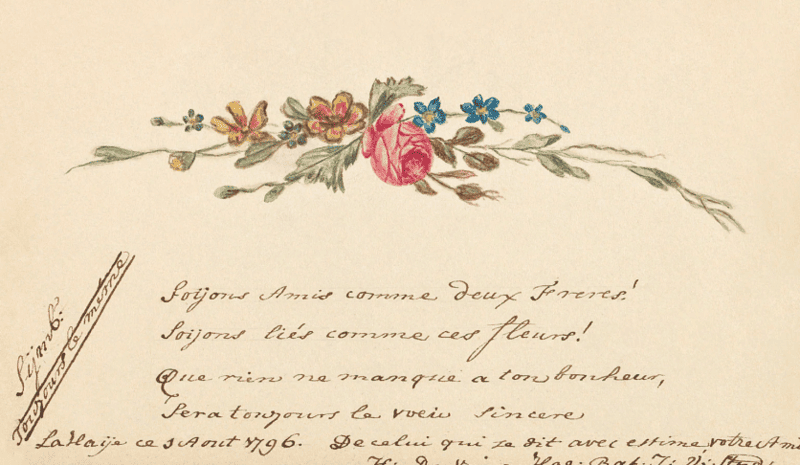 Sijmb:
Toujours le meme
Soijons Amis comme deux Freres!
Soijons liés comme ces fleurs!
Que rien ne manque a ton bonheur,
Sera toujours le voeu sincere
La Haije ce 3 Aout 1796. De celui qui se dit avec estime, votre Ami